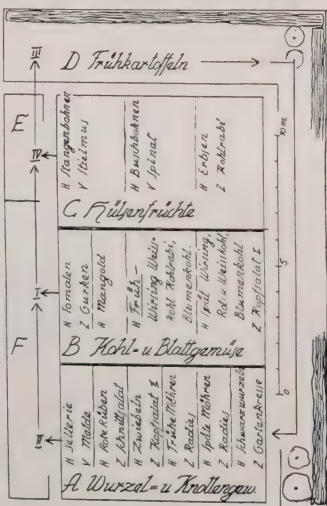 III
D Frühkartoffeln
E
IV
H Stangenbohnen
V Stielmus
H Buschbohnen
V Spinat
H Erbsen
Z Kohlrabi
C Hülsenfrüchte
10m
F
I
H Tomaten
Z Gurken
H Mangold
H Früh-
Wirsing Weiss-
kohl Kohlrabi,
Blumenkohl.
H Spät Wirsing,
Rot- u Weisskohl,
Blumenkohl
Z Kopfsalat I
B Kohl- u Blattgemüse
5
II
H Sellerie
V Melde
H Rote Rüben
Z Schnittsalat
H Zwiebeln
Z Kopfsalat I
H Frühe Möhren
Z Radies
H Späte Möhren
Z Radies
H Schwarzwurzeln
Z Gartenkresse
A Wurzel- u Knollengew.
0